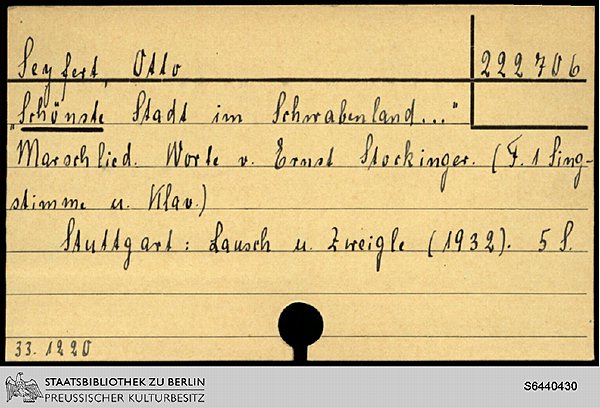 Seyfert, Otto
222706
"Schönste Stadt im Schwabenland..."
Marschlied. Worte v. Ernst Stockinger. (F. 1 Sing-
stimme u. Klav.)
Stuttgart: Lausch u. Zweigle (1932). 5 S.
33. 1220
STAATSBIBLIOTHEK ZU BERLIN
PREUSSISCHER KULTURBESITZ
S6440430